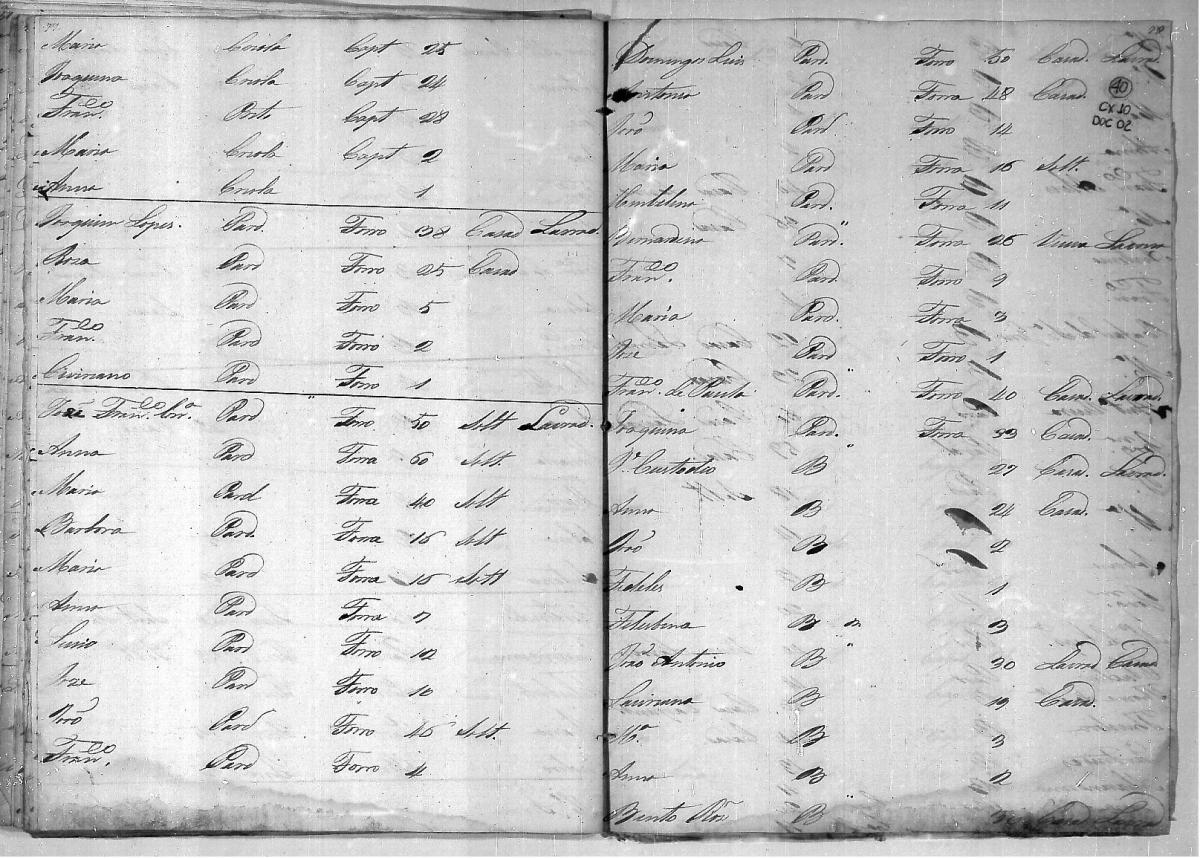 Maria Criola Capt 25
Joaquina Criola Capt 24
Fran.co Preto Capt 28
Maria Criola Capt 2
Anna Criola 1
Joaquim Lopes. Pard. Forro 38 Casad Lavrad.
Rosa Pard Forro 25 Casad
Maria Pard Forro 5
Fran.co Pard Forro 2
Civiriano Pard Forro 1
Joze Fran.co Cor.a Pard Forro 50 Solt Lavrad.
Anna Pard Forra 60 Solt.
Maria Pard Forra 40 Solt
Barbora Pard. Forra 16 Solt
Maria Pard Forra 16 Solt
Anna Pard Forra 7
Lucio Pard Forro 12
Joze Pard Forro 10
João Pard Forro 46 Solt.
Fran.co Pard Forro 4
Domingos Luis Pard. Forro 50 Casad. Lavrad.
Antonia Pard Forra 48 Casad.
40
CX 10
DOC 02
João Pard Forro 14
Maria Pard Forra 16 Solt.
Pard. Forra 11
Bernardina Pard. Forra 26 Viuva Lavora
Fran.co Pard. Forro 9
Maria Pard. Forra 3
Joze Pard Forro 1
Fran.co de Paula Pard. Forro 40 Casad. Lavrad.
Joaquina Pard. Forra 33 Casad.
Custodio B 27 Casad. Lavrad.
Anna B 24 Casad.
João B 2
Fideles B 1
Felisbina B 3
João Antonio B 30 Lavrad Casad
Lauriana B 19 Casad.
M.a B 3
Anna B 2
Bento B Casad Lavrad